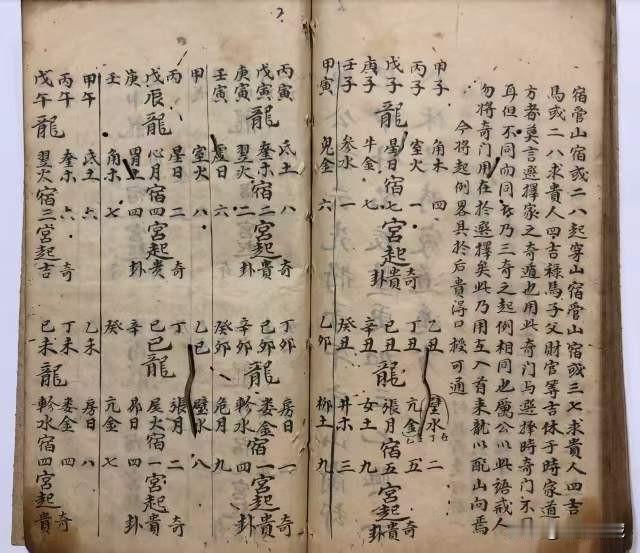 宿管山宿或二八起穿山宿管山宿或三七求貴人四吉
馬或二八求貴人四吉祿馬子父財官等吉休于時家遁
方者莫言選擇家之奇遁也用此奇门与選擇時奇门不同
耳但不同而同者乃三奇之起例相同也厲公以此語戒人
勿將奇门用在於選擇矣此乃用入首来龍以配山向焉
今將起例畧具於后貴得口授可通
甲子 角木 四 乙丑 璧水 二
丙子 室火 一 丁丑 亢金 五
戊子龍 星日宿七宮起貴 己丑龍 張月宿五宮起貴
庚子 牛金 七 卦 辛丑 女土 九 卦
壬子 参水 一 癸丑 井木 三
甲寅 鬼金 六 乙卯 柳土 九
丙寅 氐土 八 奇 丁卯 房日 一 奇
戊寅龍 奎木宿二宮起貴 己卯龍 婁金宿一宮起貴
庚寅 翌火 二 卦 辛卯 軫水 四 卦
壬寅 虚日 九 癸卯 危月 九
甲 室火 八 乙巳 壁水 八
丙 星日 二 奇 丁 張月 二 奇
戊辰龍 心月宿四宮起贵 己巳龍 尾火宿一宮起貴
庚 胃土 四 卦 辛 昴日 四 卦
壬 角木 七 癸 亢金 七
甲午 氐土 六 乙未 房日 八
丙午 奎木 六 奇 丁未 婁金 四 奇
戊午龍 翌火宿三宮起吉 己未龍 軫水宿四宮起貴